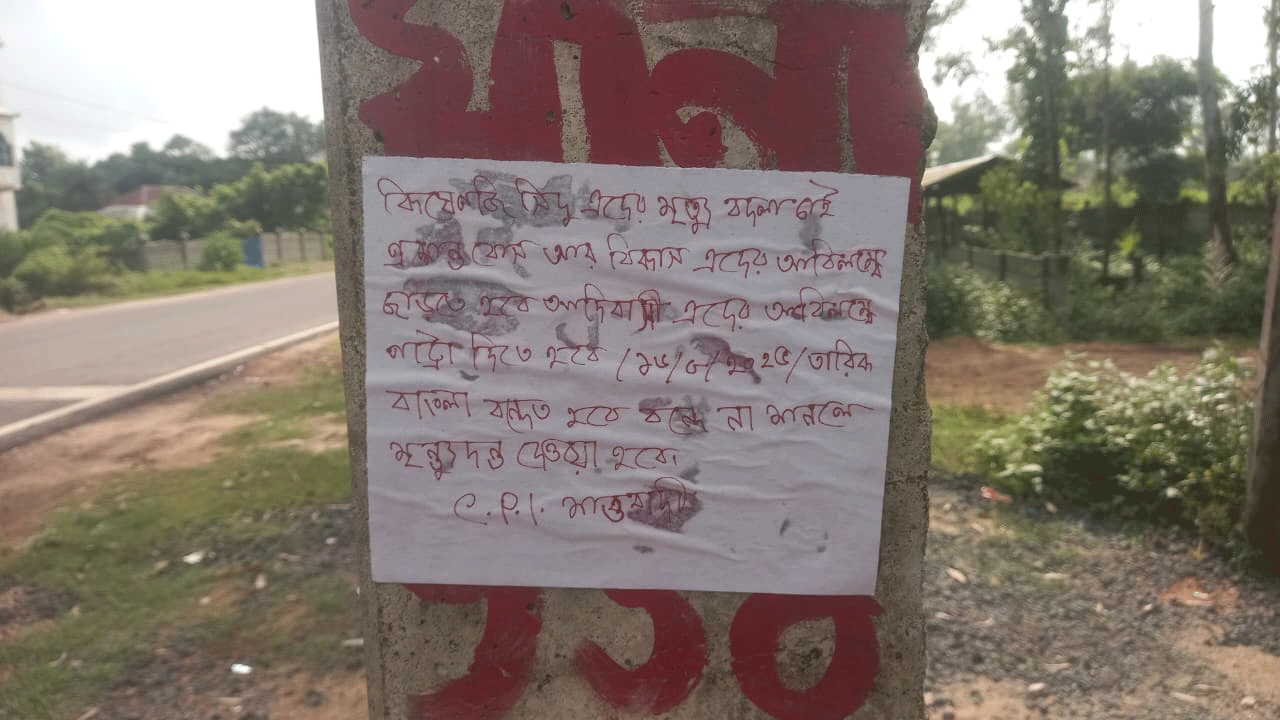 থানা
কিষেনজি সিদু এদের মৃত্যু বদলা চাই
প্রশান্ত বোস আর বিকাস এদের অবিলম্বে
ছাড়তে হবে আদিবাসী এদের অবিলম্বে
পাট্টা দিতে হবে /১৫/৮/২০২৫/ তারিক
বাংলা বন্দেত হবে বন্দে না মানলে
মৃত্যুদন্ড দেওয়া হবে
C.P.I. মাওবাদী
১০